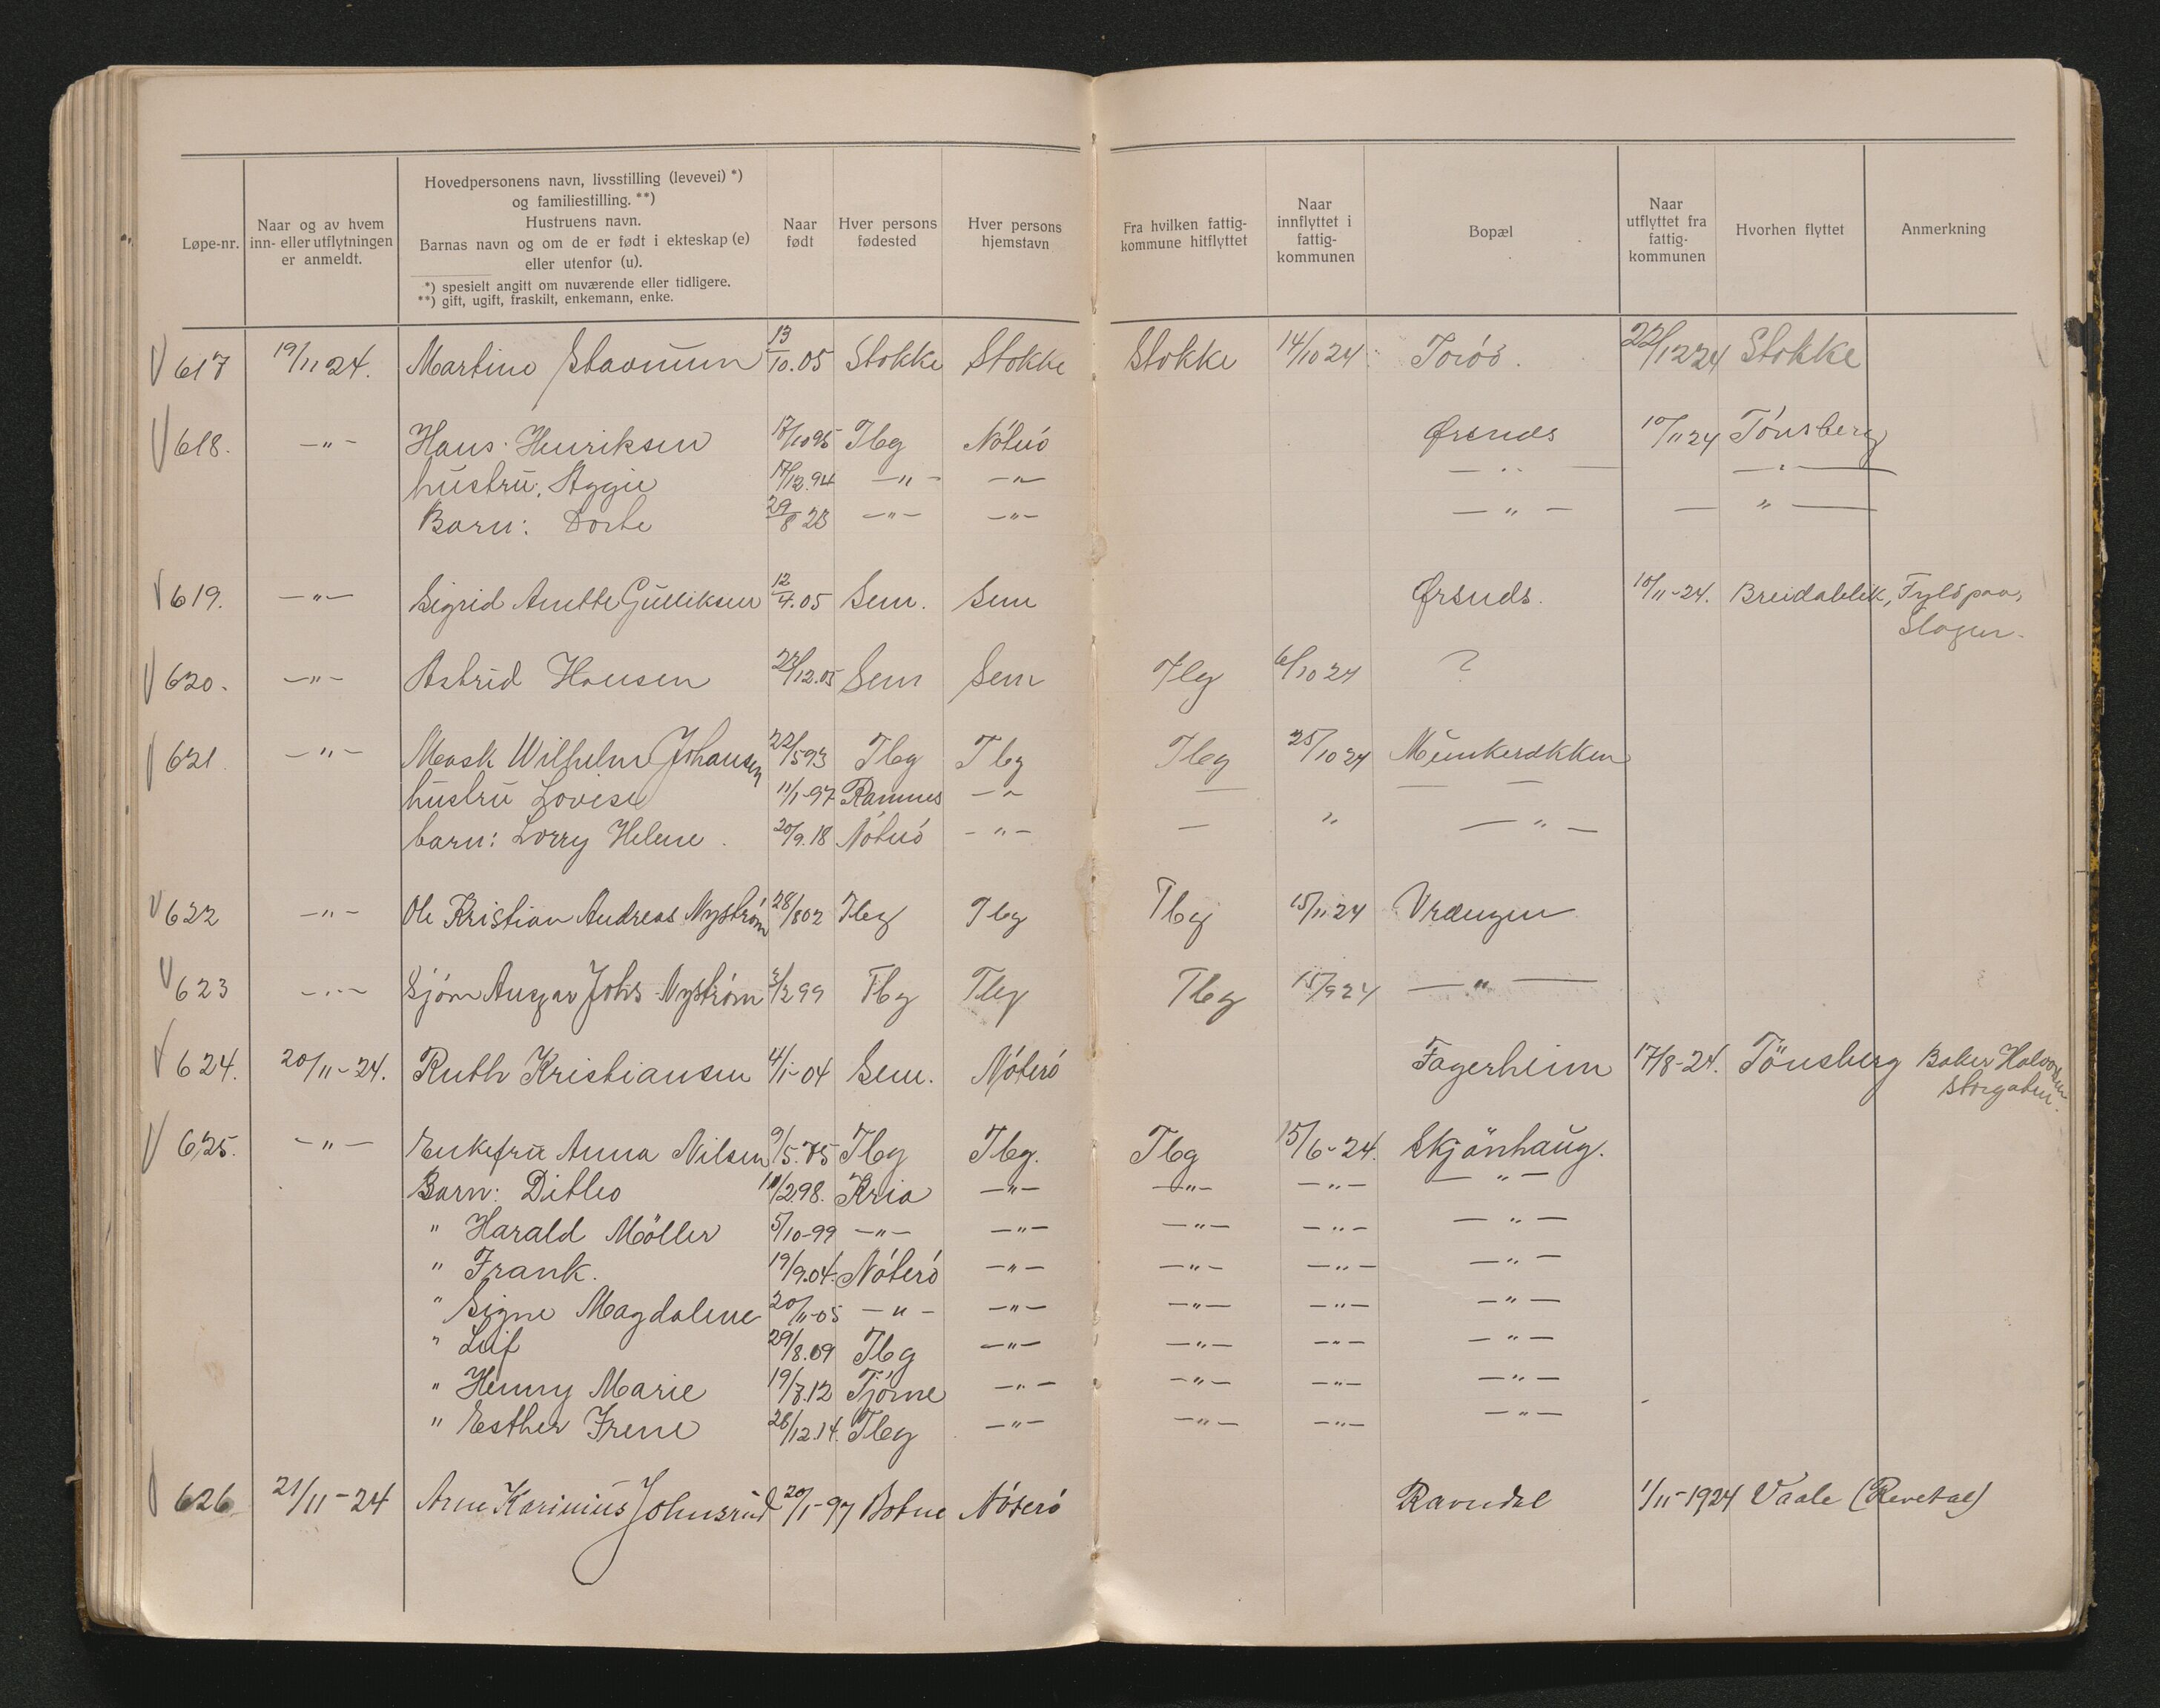 Løpe-nr.
Naar og av hvem
inn- eller utflytningen
er anmeldt.
Hovedpersonens navn, livsstilling (levevei) *)
og familiestilling. **)
Hustruens navn.
Barnas navn og om de er født i ekteskap (e)
eller utenfor (u).
*) spesielt angitt om nuværende eller tidligere.
**) gift, ugift, fraskilt, enkemann, enke.
Naar
født
Hver persons
fødested
Hver persons
hjemstavn
Fra hvilken fattig-
kommune hitflyttet
Naar
innflyttet i
fattig-
kommunen
Bopæl
Naar
utflyttet fra
fattig-
kommunen
Hvorhen flyttet
Anmerkning
617 19/11 24. Martine 13/10.05 Stokke Stokke Stokke 14/10 24 Torød. 22/12 24 Stokke
618. —"— Hans Henriksen 17/10 95 Tbg Nøterø Ørsnes 10/11 24 Tønsberg
hustru, Aggie 17/12.94 —"— —"— —"— —"—
Barn: Dorte 29/8 23 —"— —"— —"— —"—
619. —"— Sigrid Anette Gulliksen 12/4.05 Sem. Sem Ørsnes. 10/11-24. Breidablik, Tyldpaa,
Slagen.
620. —"— Astrid Hansen 23/12.05 Sem Sem Tbg 6/10 24 ?
621. —"— Mask Wilhelm Johansen 22/5 93 Tbg Tbg Tbg 25/10 24 Munkerekken
hustru Lovise 11/1-97 Ramnes —"— — — —
barn: Lorry Helene. 20/9.18 Nøterø —"— — " —"—
622 —"— Ole Kristian Andreas Nystrøm 28/8 02 Tbg Tbg Tbg 15/11 24 Vrængen
623 —"— Sjøm Ansgar Johs Nystrøm 3/2 99 Tbg Tbg Tbg 15/9 24 —"—
624. 20/11-24. Ruth Kristiansen 4/1-04 Sem. Nøterö Fagerheim 17/8-24. Tönsberg Baker Halvorsen
Storgaten.
625. —"— Enkefru Anna Nilsen 9/5.75 Tbg Tbg. Tbg 15/6-24. Skjönhaug.
Barn: Ditlev 10/2.98. Kria —"— —"— —"— —"—
" Harald Möller 5/10-99 —"— —"— —"— —"— —"—
" Frank. 19/9.04. Nøterö —"— —"— —"— —"—
" Signe Magdalene 20/11-05 —"— —"— —"— —"— —"—
" Leif 29/8.09 Tbg —"— —"— —"— —"—
" Henny Marie 19/8.12 Tjöme —"— —"— —"— —"—
" Esther Irene 26/12.14. Tbg —"— —"— —"— —"—
626 21/11-24 Arne Karinius Johnsrud 20/1-97 Botne Nøterö Ravndal 1/11-1924 Vaale (Revetal)